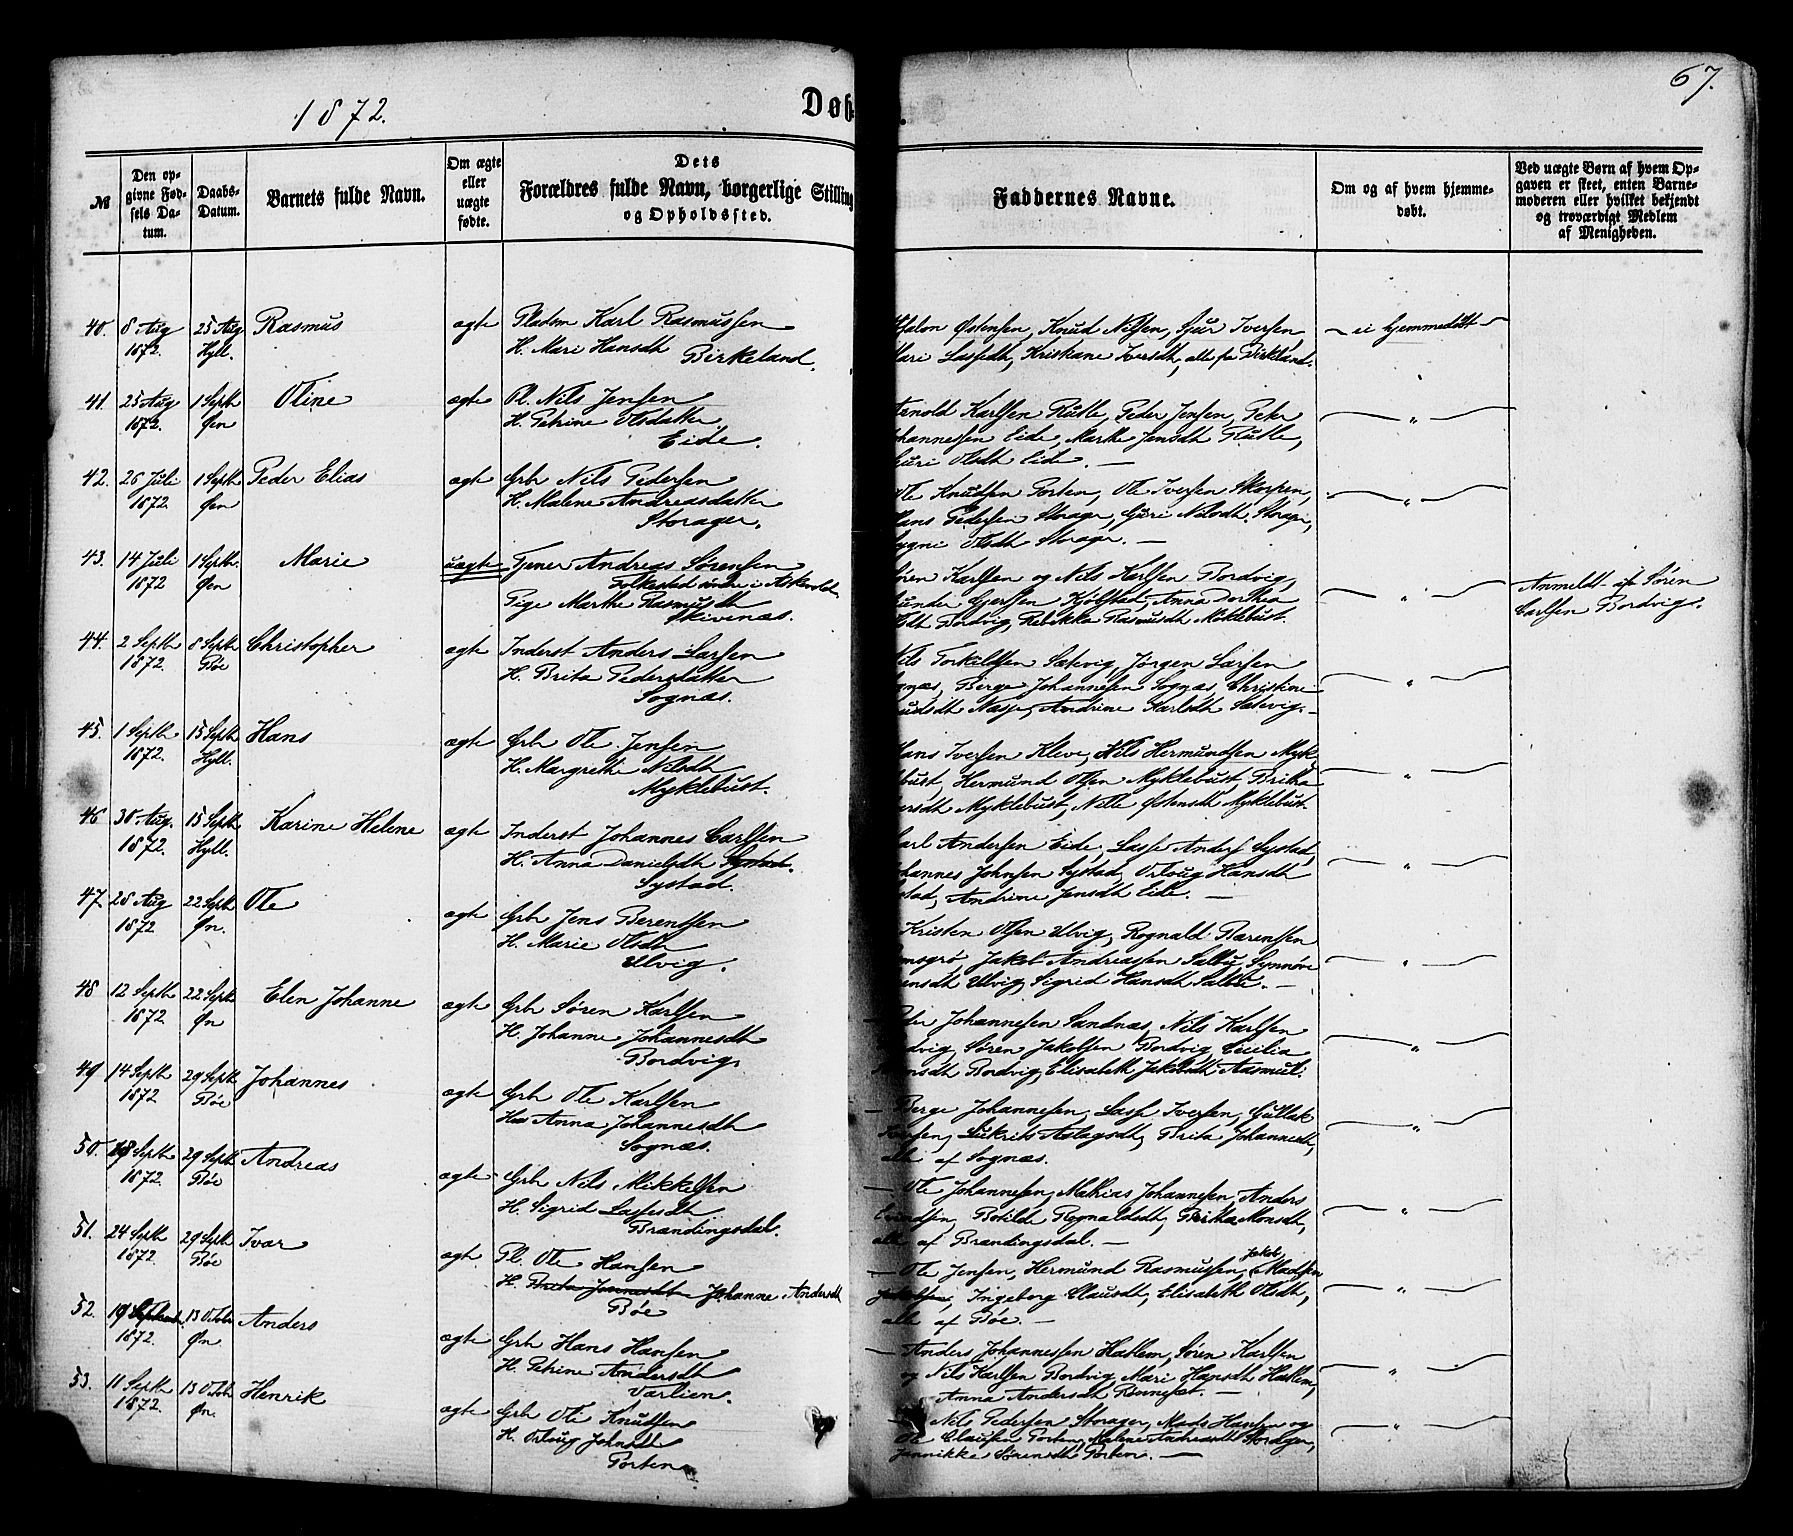 1872.
Døb
67.
№
Den op-
givne Fød-
sels Da-
tum.
Daabs-
Datum.
Barnets fulde Navn.
Om ægte
eller
uægte
fødte.
Dets
Forældres fulde Navn, borgerlige Stilling
og Opholdssted.
Faddernes Navne.
Om og af hvem hjemme-
døbt.
Ved uægte Børn af hvem Op-
gaven er skeet, enten Barne-
moderen eller hvilket bekjendt
og troværdigt Medlem
af Menigheden.
40. 8 Aug 25 Aug Rasmus ægte Pladsm Karl Rasmussen
1872. Hyll. H. Mari Hansdt Birkeland.
Østensen, Knud Nilsen, Sjur Iversen,
Mari Lassedt, Kristiane Iversdt, alle fra Birkland.
ei hjemmedøbt
41. 25 Aug 1 Septb Oline ægte Pl. Nils Jensen
1872. Øen H. Petrine Olsdatter
Eide.
Karlsen Rutle, Peder Jensen, Peter
Johannessen Eide, Marthe Jensdt Rutle,
Guri Olsdt Eid. —
"
42. 26 Juli 1 Septb Peder Elias ægte Grbr Nils Pedersen
1872. Øen H. Malene Andreasdatter
Storager.
Ole Knudsen Porten, Ole Iversen Skorpen,
Hans Pedersen Storager, Guri Nilsdt. Storager,
Olsdt Storager. —
"
43. 14 Juli 1 Septb. Marie uægte Tjener Andreas Sørensen
1872 Øen Folkestad indre i Askevold
Pige Marthe Rasmusdt
Skivenæs.
Søren Karlsen og Nils Karlsen Bordvig,
Kjølstad, Anna Dorthea
Bordvig, Rebekka Rasmusdt Myklebust.
"
Anmeldt af Søren
Carlsen Bordvig.
44. 2 Septb 8 Septb Christopher ægte Inderst Anders Larsen
1872. Bøe H. Brita Pedersdatter
Sognæs.
Nils Torkildsen Sætevig, Jørgen Larsen
Sognæs, Berge Johannesen Sognæs, Christine
Nasse, Andrine Karlsdt Sætevig. —
"
45. 1 Septb 15 Septb Hans ægte Grbr Ole Jensen
1872. Hyll. H. Margrethe Nilsdt
Myklebust.
Hans Iversen Kleve, Nils Hermundsen Mykle-
bust, Hermund Olsen Myklebust, Britha
Iversdt Myklebust, Nille Østensdt Myklebust.
"
46 30 Aug. 15 Septb Karine Helene ægte Inderst Johannes Carlsen
1872. Hyll. H. Anna Danielsdt Systad.
Systad.
Carl Andersen Eide, Lasse Anders. Systad,
Johannes Johnsen Systad, Orloug Hansdt
Systad, Andrine Jensdt Eide. —
"
47. 28 Aug 22 Septb Ole ægte Grbr Jens Berentsen
1872 Øn. H. Marie Olsdt
Ulvig.
Kristen Olsen Ulvig, Rognald Bærentsen
Jakob Andreassen Salbu, Synnøve
Ulvig, Sigrid Hansdt Salbu. —
"
48 12 Septb 22 Septb Elen Johanne ægte Grbr Søren Karlsen
1872 Øn H. Johanne Johannesdt
Bordvig
Peder Johannesen Sandnæs, Nils Karlsen
Bordvig, Søren Jakobsen Bordvig, Cecilia
Bordvig, Elisabeth Jakobsdt Aasmul.
"
49 14 Septb 29 Septb Johannes ægte Grbr Ole Karlsen
1872 Bøe Hus Anna Johannesdt
Sognæs.
— Berge Johannesen, Lasse Iversen, Gullak
Iversen, Lukrits Aslagsdt, Brita Johannesdt,
alle af Sognæs.
"
50. 18 Septb 29 Septb Andreas ægte Grbr Nils Mikkelsen
1872. Bøe H. Sigrid Lassedt
Brandingsdal.
— Ole Johannesen, Mathias Johannesen, Anders
Eivindsen, Botilde Rognaldsdt, Britha Monsdt,
alle af Brandingsdal. —
"
51. 24 Septb 29 Septb Ivar ægte Pl. Ole Hansen
1872. Bøe H. Brita Joensdt Johanne Andersdt
Bøe
— Ole Jensen, Hermund Rasmussen, Jakob Madsen
Jakobsen, Ingeborg Clausdt, Elisabeth Olsdt,
alle af Bøe. —
"
52. 19 Septemb 13 Octobr Anders ægte Grbr Hans Hansen
1872. Øn. H. Petrine Andersdt
Varlien.
— Anders Johannessen Hatlem, Søren Karlsen
og Nils Karlsen Bordvig, Mari Hansdt Hatlem,
Anna Andersdt Rønneset. —
"
53. 11 Septb 13 Octbr Henrik ægte Grbr Ole Knudsen
1872. Øn. H. Orloug Johnsdt
Porten
— Nils Pedersen Storager, Mads Hansen og
Ole Clausen Porten, Malene Andreasdt Storager,
Jannikke Sørensdt Porten. —
"